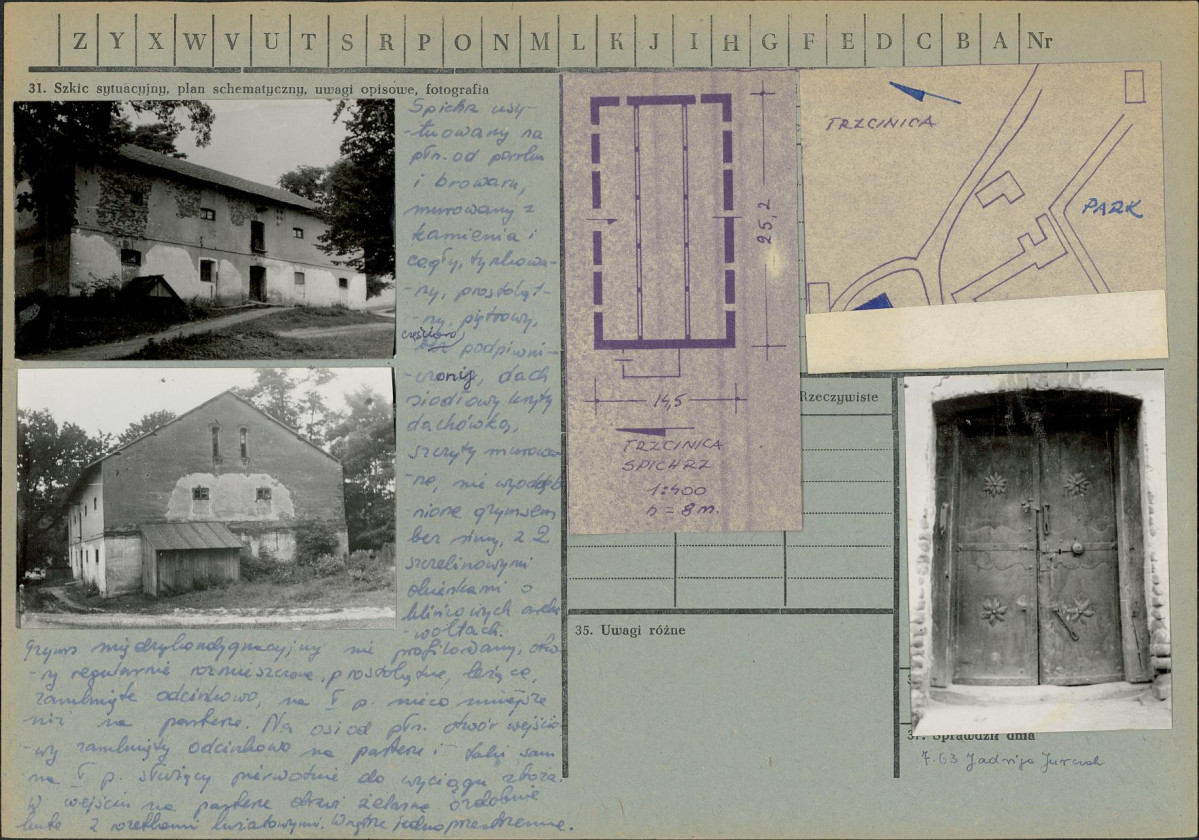 Z Y X W V U T S R P O N M L K J I H G F E D C B A Nr
31. Szkic sytuacyjny, plan schematyczny, uwagi opisowe, fotografia
Spichrz usy-
-tuowany na
płn. od parku
i browaru,
murowany z
kamienia i
cegły, tynkowa-
-ny, prostokąt-
-ny, piętrowy,
częściowo
podpiwni-
-czony, dach
siodłowy kryty
dachówką,
szczyty murowa-
-ne, nie wyodręb
nione gzymsem
bez simy, z 2
szczelinowymi
okienkami o
klińcowych archi
-woltach.
Gzyms międzykondygnacyjny nie profilowany, otwo-
-ry regularnie rozmieszczone, prostokątne, leżące,
zamknięte odcinkowo, na I p. nieco mniejsze
niż na parterze. Na osi od płn. otwór wejścio
-wy zamknięty odcinkowo na parterze i taki sam
na I p. służący pierwotnie do wyciągu zboża.
W wejściu na parterze drzwi żelazne ozdobnie
kute z rozetkami kwiatowymi. Wnętrze jednoprzestrzenne.
25,2
14,5
TRZCINICA
SPICHRZ
1:400
h = 8 m.
TRZCINICA
PARK
Rzeczywiste
35. Uwagi różne
37. Sprawdził dnia
7.63 Jadwiga Jurczak